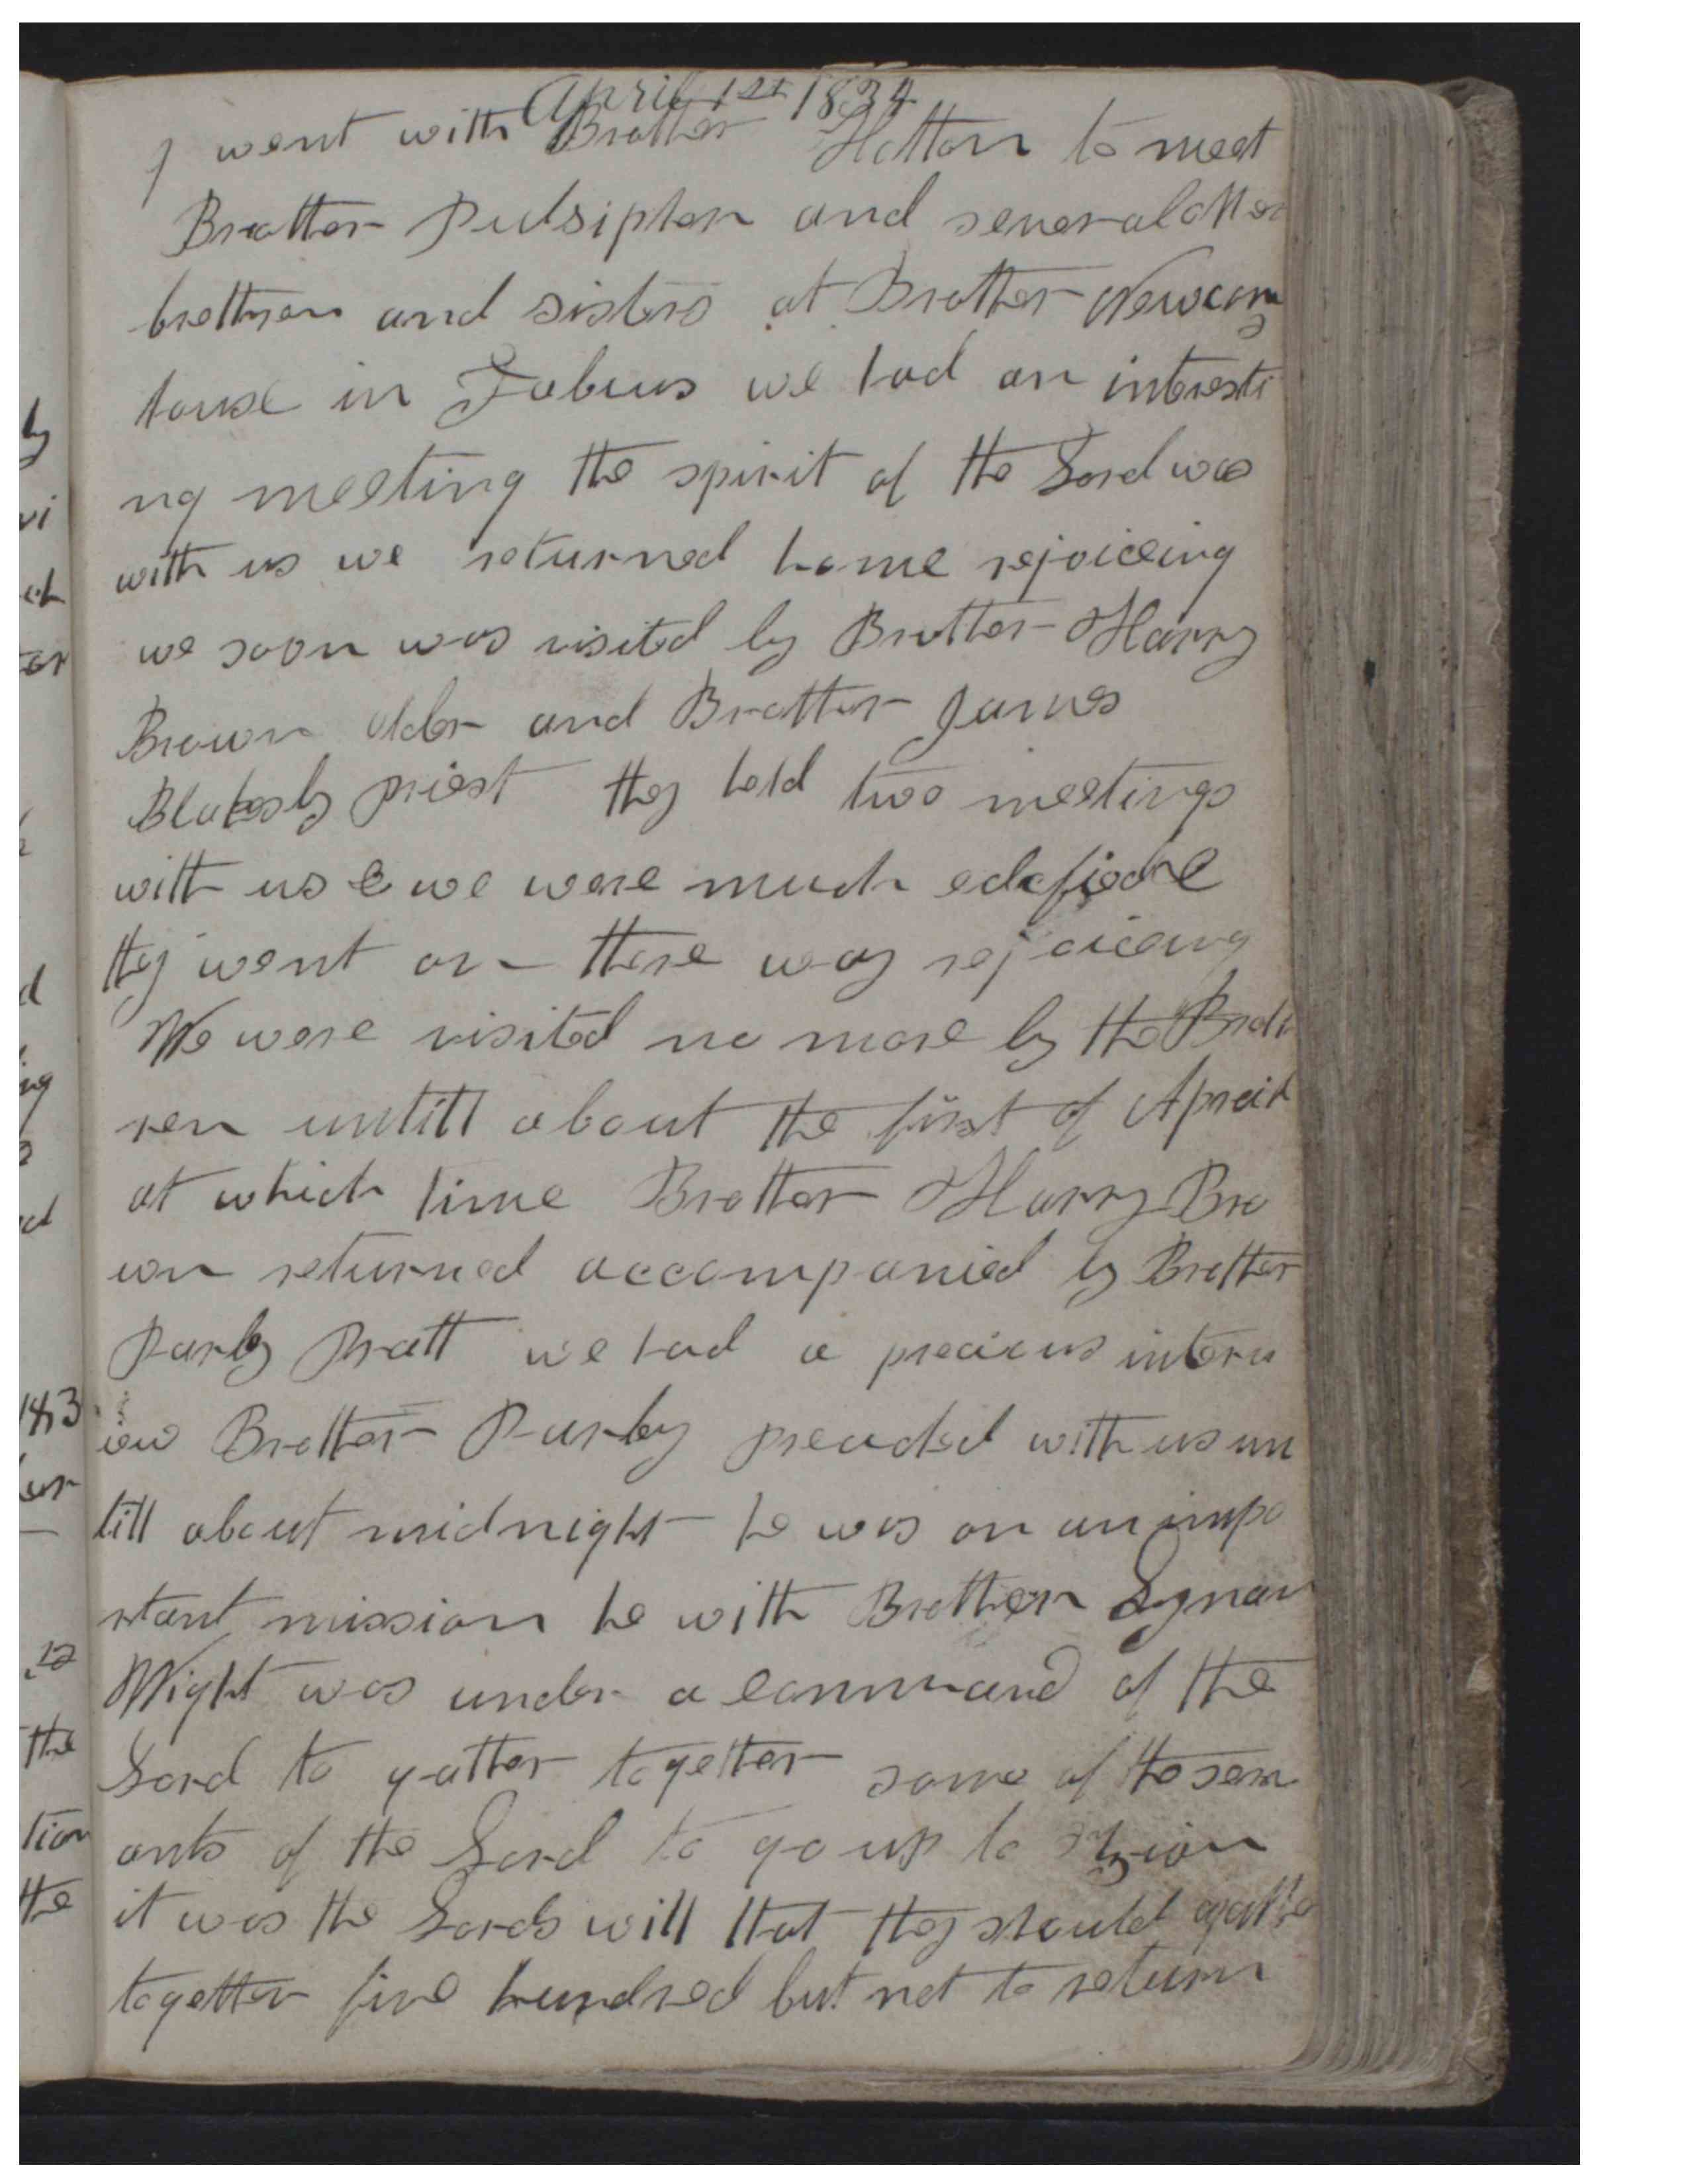 April 1st 1834
I went with Brother Holton to meet
Brother Pulsipher and several other
brethren and sisters at Brother Newcoms
house in Fabius we had an interesti
ng meeting the spirit of the Lord was
with us we returned home rejoiceing
we soon was visited by Brother Harry
Brown elder and Brother James
Blakesly priest they held two meetings
with us & we were much edefied
they went on there way rejoiceing
We were visited no more by the Breth
ren untill about the first of Apreil
at which time Brother Harry Bro
wn returned accompanied by Brother
Parley Pratt we had a precious interv
iew Brother Parley preached with us un
till about midnight he was on an impo
rtant mission he with Brother Lyman
Wight was under a command of the
Lord to gather together some of the serv
ants of the Lord to go up to Zion
it was the Lords will that they should gathe
together five hundred but not to return